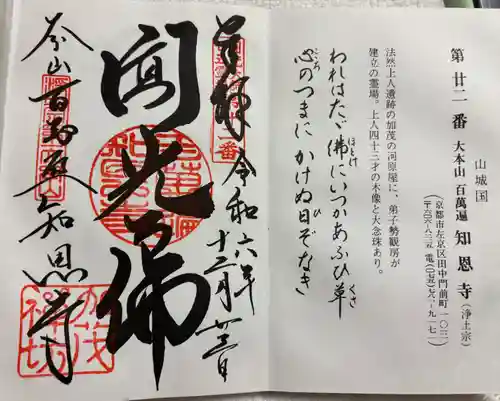 山城国
第廿二番 大本山 百萬遍 知恩寺(浄土宗)
(京都市左京区田中門前町一〇二
〒六〇六-八二二五 電(〇七五)七八一-九一七一)
法然上人遺跡の加茂の河原屋に、弟子勢観房が
建立の霊場。上人四十三才の木像と大念珠あり。
われはたゞ佛にいつかあふひ草
心のつまに かけぬ日ぞなき
奉拝 令和六年
十二月廿三日
光佛
本山百万遍知恩寺
加茂